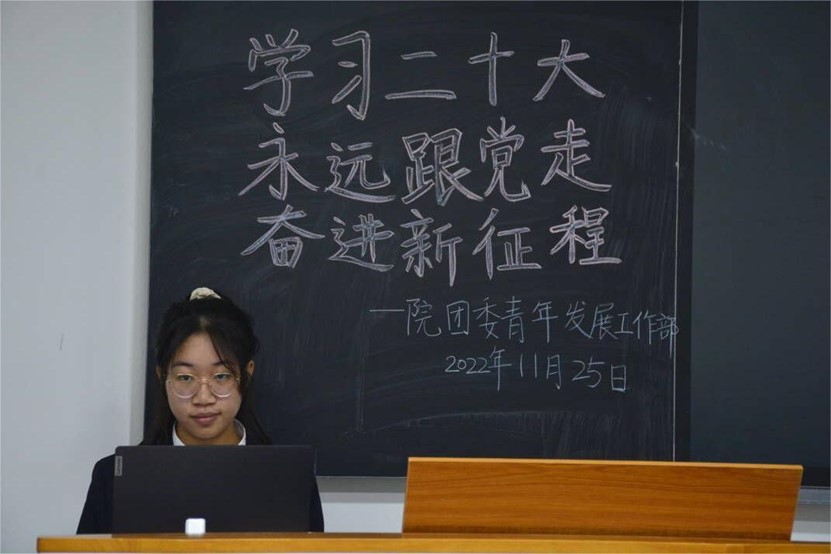 学习二十大
永远跟党走
奋进新征程
—院团委青年发展工作部
2022年11月25日
Lenovo